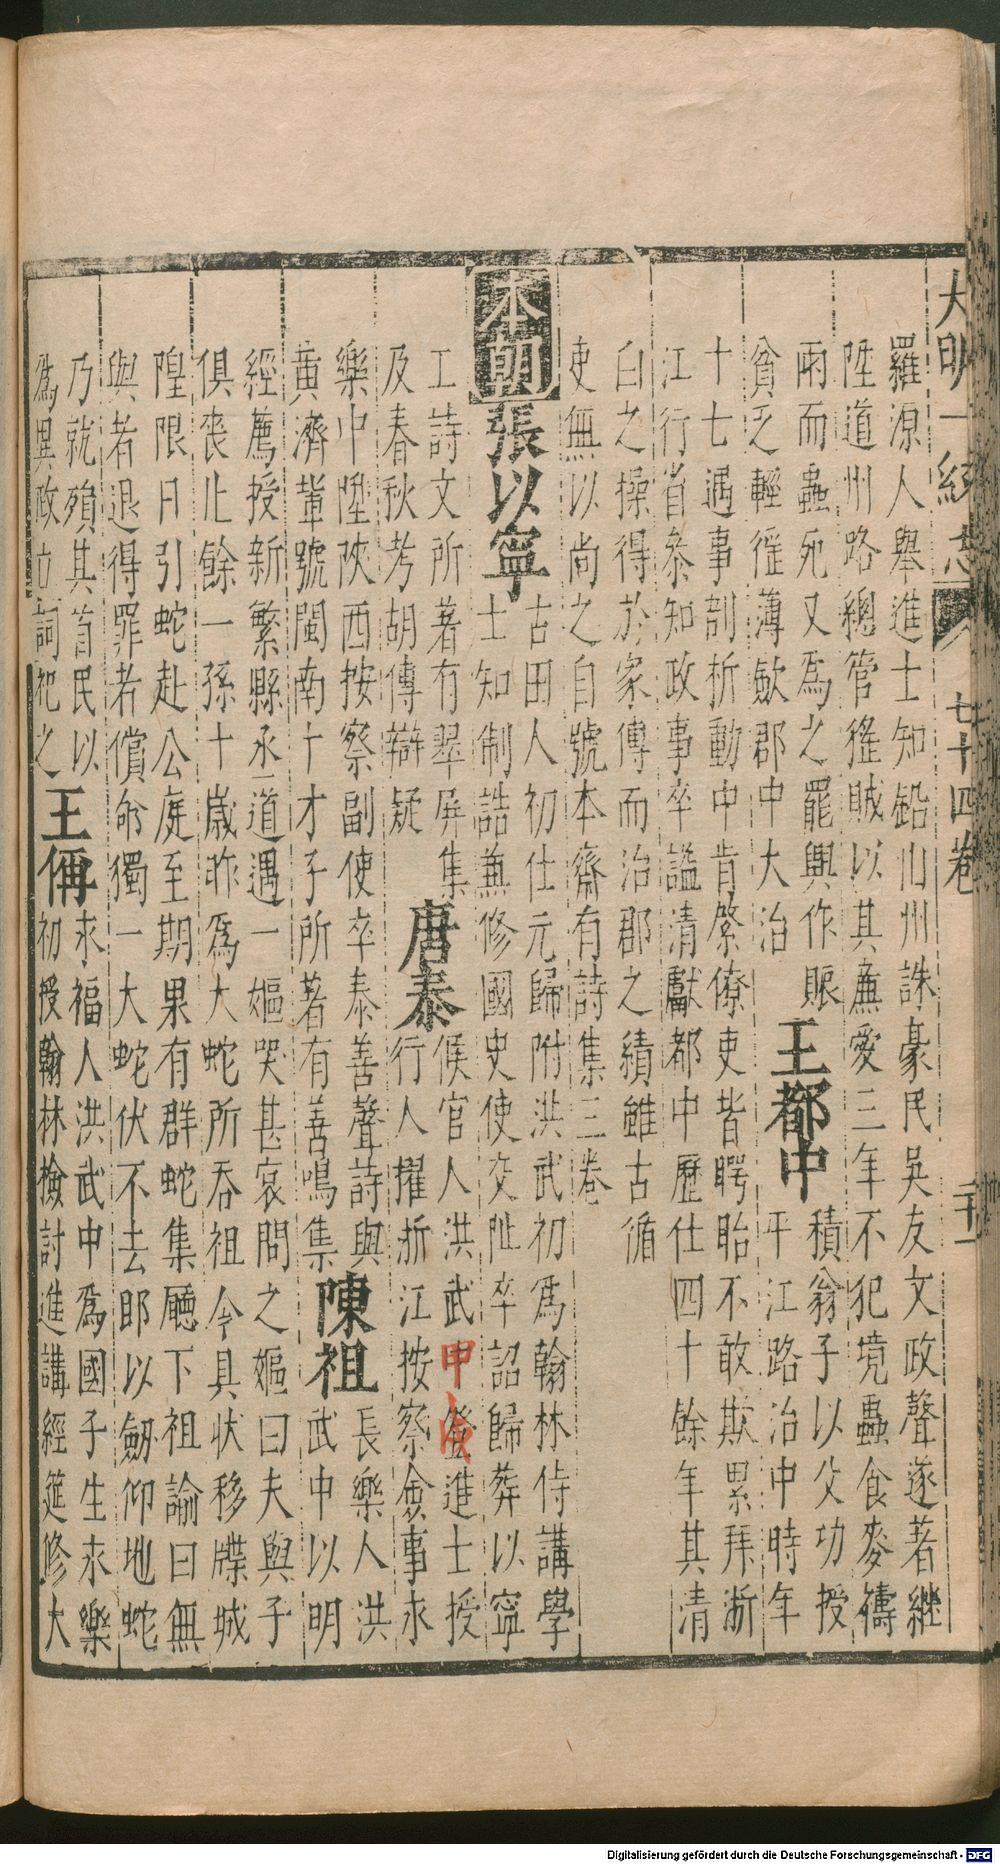 大明一統志 七十四卷 二十一
羅源人舉進士知鉛山州誅豪民吳友文政聲遂著繼
陞道州路總管徭賊以其廉愛三年不犯境蟲食麥禱
雨而蟲死又為之罷興作賑
貧乏輕徭薄歛郡中大治
王都中
積翁子以父功授
平江路治中時年
十七遇事剖析動中肯綮僚吏皆瞪眙不敢欺累拜浙
江行省叅知政事卒謚清獻都中歷仕四十餘年其清
白之操得於家傳而治郡之績雖古循
吏無以尚之自號本齋有詩集三卷
本朝張以寧
古田人初仕元歸附洪武初為翰林侍講學
士知制誥兼修國史使交阯卒詔歸葬以寧
工詩文所著有翠屏集
及春秋考胡傳辯疑
唐泰
候官人洪武甲戌登進士授
行人擢浙江按察僉事永
樂中陞陜西按察副使卒泰善聲詩與
黃濟軰號閩南十才子所著有善鳴集
陳祖
長樂人洪
武中以明
經薦授新繁縣丞道遇一嫗哭甚哀問之嫗曰夫與子
俱喪止餘一孫十歲昨為大蛇所吞祖令具状移牒城
隍限日引蛇赴公庭至期果有群蛇集廳下祖諭曰無
與者退得罪者償命獨一大蛇伏不去即以劔仰地蛇
乃就殞其首民以
為異政立祠祀之
王偁
永福人洪武中為國子生永樂
初授翰林檢討進講經筵修大
Digitalisierung gefördert durch die Deutsche Forschungsgemeinschaft - DFG